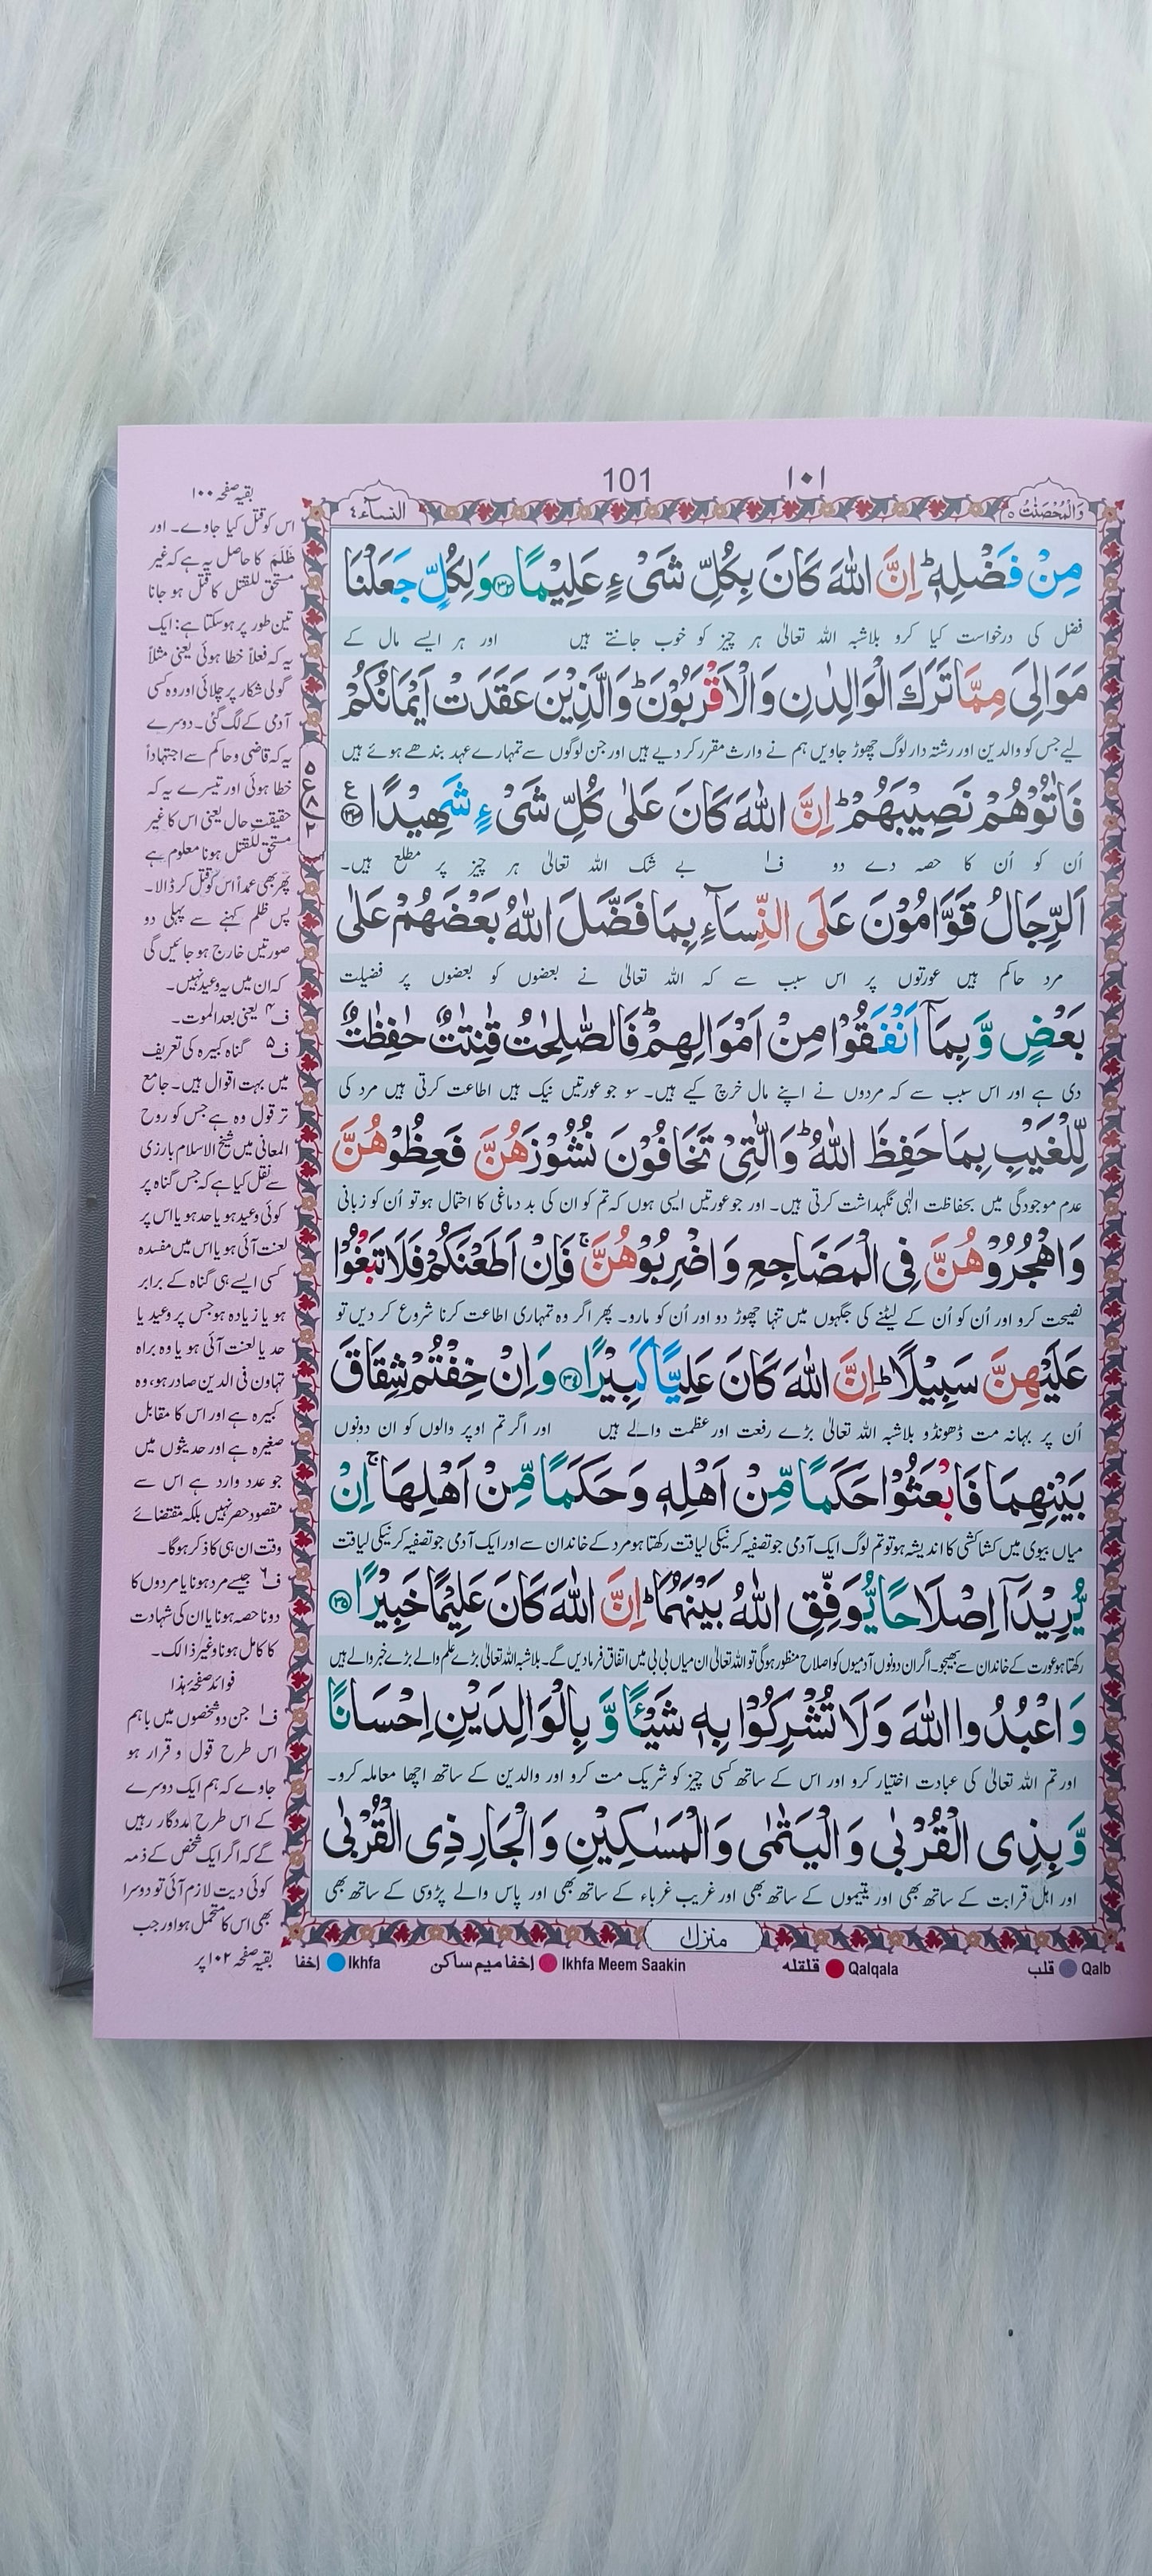 101 ۱۰۱
وَالْمُحْصَنٰتُ ٥ النساء ٤
مِنْ فَضْلِهٖ ؕ اِنَّ اللّٰهَ كَانَ بِكُلِّ شَیْءٍ عَلِیْمًا ﴿۳۲﴾ وَلِكُلٍّ جَعَلْنَا
فضل کی درخواست کیا کرو بلاشبہ اللہ تعالیٰ ہر چیز کو خوب جانتے ہیں اور ہر ایسے مال کے
مَوَالِیَ مِمَّا تَرَكَ الْوَالِدٰنِ وَالْاَقْرَبُوْنَ ؕ وَالَّذِیْنَ عَقَدَتْ اَیْمَانُكُمْ
لیے جس کو والدین اور رشتہ دار لوگ چھوڑ جاویں ہم نے وارث مقرر کر دیے ہیں اور جن لوگوں سے تمہارے عہد بندھے ہوئے ہیں
فَاٰتُوْهُمْ نَصِیْبَهُمْ ؕ اِنَّ اللّٰهَ كَانَ عَلٰی كُلِّ شَیْءٍ شَهِیْدًا ﴿۳۳﴾ ع
اُن کو اُن کا حصہ دے دو ف۱ بے شک اللہ تعالیٰ ہر چیز پر مطلع ہیں۔
اَلرِّجَالُ قَوّٰمُوْنَ عَلَی النِّسَآءِ بِمَا فَضَّلَ اللّٰهُ بَعْضَهُمْ عَلٰی
مرد حاکم ہیں عورتوں پر اس سبب سے کہ اللہ تعالیٰ نے بعضوں کو بعضوں پر فضیلت
بَعْضٍ وَّ بِمَآ اَنْفَقُوْا مِنْ اَمْوَالِهِمْ ؕ فَالصّٰلِحٰتُ قٰنِتٰتٌ حٰفِظٰتٌ
دی ہے اور اس سبب سے کہ مردوں نے اپنے مال خرچ کیے ہیں۔ سو جو عورتیں نیک ہیں اطاعت کرتی ہیں مرد کی
لِّلْغَیْبِ بِمَا حَفِظَ اللّٰهُ ؕ وَالّٰتِیْ تَخَافُوْنَ نُشُوْزَهُنَّ فَعِظُوْهُنَّ
عدم موجودگی میں بحفاظت الٰہی نگہداشت کرتی ہیں۔ اور جو عورتیں ایسی ہوں کہ تم کو ان کی بد دماغی کا احتمال ہو تو اُن کو زبانی
وَاهْجُرُوْهُنَّ فِی الْمَضَاجِعِ وَاضْرِبُوْهُنَّ ۚ فَاِنْ اَطَعْنَكُمْ فَلَا تَبْغُوْا
نصیحت کرو اور اُن کو اُن کے لیٹنے کی جگہوں میں تنہا چھوڑ دو اور اُن کو مارو۔ پھر اگر وہ تمہاری اطاعت کرنا شروع کر دیں تو
عَلَیْهِنَّ سَبِیْلًا ؕ اِنَّ اللّٰهَ كَانَ عَلِیًّا كَبِیْرًا ﴿۳۴﴾ وَاِنْ خِفْتُمْ شِقَاقَ
اُن پر بہانہ مت ڈھونڈو بلاشبہ اللہ تعالیٰ بڑے رفعت اور عظمت والے ہیں اور اگر تم اوپر والوں کو ان دونوں
بَیْنِهِمَا فَابْعَثُوْا حَكَمًا مِّنْ اَهْلِهٖ وَحَكَمًا مِّنْ اَهْلِهَا ۚ اِنْ
میاں بیوی میں کشاکشی کا اندیشہ ہو تو تم لوگ ایک آدمی جو تصفیہ کرنیکی لیاقت رکھتا ہو مرد کے خاندان سے اور ایک آدمی جو تصفیہ کرنیکی لیاقت
یُّرِیْدَآ اِصْلَاحًا یُّوَفِّقِ اللّٰهُ بَیْنَهُمَا ؕ اِنَّ اللّٰهَ كَانَ عَلِیْمًا خَبِیْرًا ﴿۳۵﴾
رکھتا ہو عورت کے خاندان سے بھیجو۔ اگر ان دونوں آدمیوں کو اصلاح منظور ہو گی تو اللہ تعالیٰ ان میاں بی بی میں اتفاق فرما دیں گے۔ بلاشبہ اللہ تعالیٰ بڑے علم والے بڑے خبر والے ہیں
وَاعْبُدُوا اللّٰهَ وَلَا تُشْرِكُوْا بِهٖ شَیْئًا وَّ بِالْوَالِدَیْنِ اِحْسَانًا
اور تم اللہ تعالیٰ کی عبادت اختیار کرو اور اس کے ساتھ کسی چیز کو شریک مت کرو اور والدین کے ساتھ اچھا معاملہ کرو۔
وَّ بِذِی الْقُرْبٰی وَالْیَتٰمٰی وَالْمَسٰكِیْنِ وَالْجَارِ ذِی الْقُرْبٰی
اور اہل قرابت کے ساتھ بھی اور یتیموں کے ساتھ بھی اور غریب غرباء کے ساتھ بھی اور پاس والے پڑوسی کے ساتھ بھی
منزل
بقیہ صفحہ ۱۰۰
اس کو قتل کیا جاوے۔ اور
ظلم کا حاصل یہ ہے کہ غیر
مستحق للقتل کا قتل ہو جانا
تین طور پر ہو سکتا ہے: ایک
یہ کہ فعلاً خطا ہوئی یعنی مثلاً
گولی شکار پر چلائی اور وہ کسی
آدمی کے لگ گئی۔ دوسرے
یہ کہ قاضی و حاکم سے اجتہاداً
خطا ہوئی اور تیسرے یہ کہ
حقیقت حال یعنی اس کا غیر
مستحق للقتل ہونا معلوم ہے
پھر بھی عمداً اس کو قتل کر ڈالا۔
پس ظلم کہنے سے پہلی دو
صورتیں خارج ہو جائیں گی
کہ ان میں یہ وعید نہیں۔
ف۴ یعنی بعد الموت۔
ف۵ گناہ کبیرہ کی تعریف
میں بہت اقوال ہیں۔ جامع
تر قول وہ ہے جس کو روح
المعانی میں شیخ الاسلام بارزی
سے نقل کیا ہے کہ جس گناہ پر
کوئی وعید ہو یا حد ہو یا اس پر
لعنت آئی ہو یا اس میں مفسدہ
کسی ایسے ہی گناہ کے برابر
ہو یا زیادہ ہو جس پر وعید یا
حد یا لعنت آئی ہو یا وہ براہ
تہاون فی الدین صادر ہو، وہ
کبیرہ ہے اور اس کا مقابل
صغیرہ ہے اور حدیثوں میں
جو عدد وارد ہے اس سے
مقصود حصر نہیں بلکہ مقتضائے
وقت ان ہی کا ذکر ہوگا۔
ف۶ جیسے مرد ہونا یا مردوں کا
دونا حصہ ہونا یا ان کی شہادت
کا کامل ہونا وغیر ذالک۔
فوائد صفحہ ہذا
ف۱ جن دو شخصوں میں باہم
اس طرح قول و قرار ہو
جاوے کہ ہم ایک دوسرے
کے اس طرح مددگار رہیں
گے کہ اگر ایک شخص کے ذمہ
کوئی دیت لازم آئی تو دوسرا
بھی اس کا متحمل ہو اور جب
بقیہ صفحہ ۱۰۲ پر
اخفا Ikhfa اخفا میم ساکن Ikhfa Meem Saakin قلقله Qalqala قلب Qalb